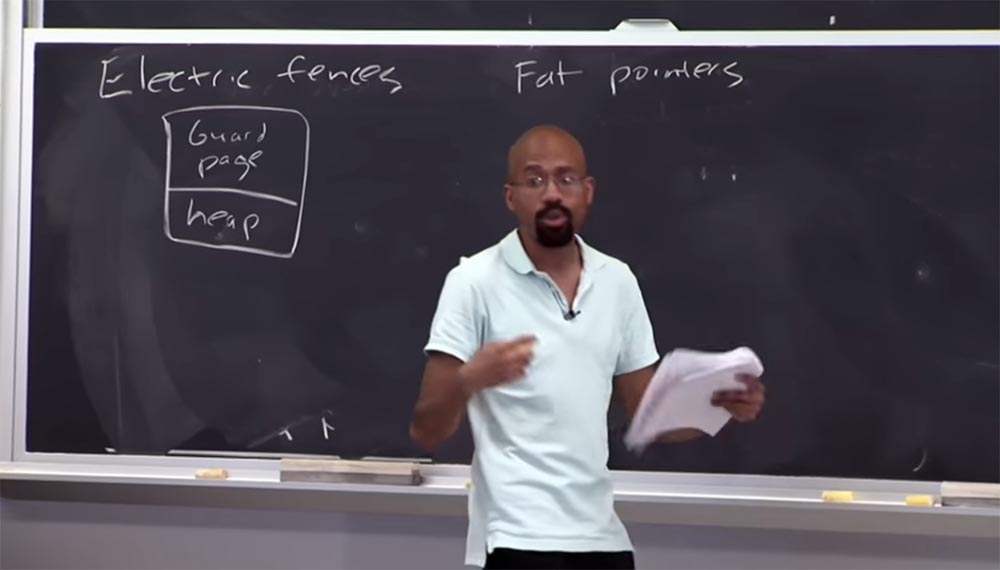 Electric fences
Guard
page
heap
Fat pointers